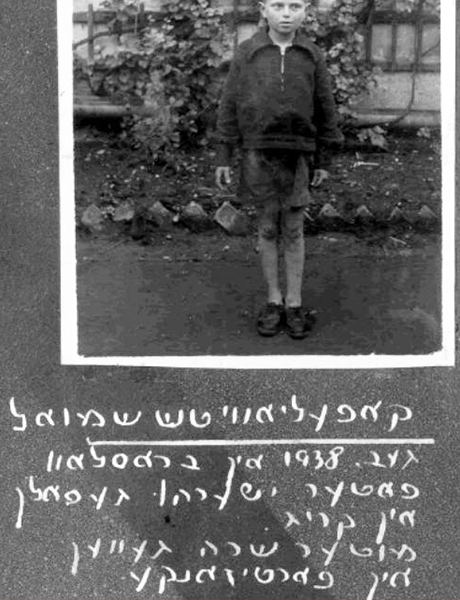 קאפעליאוויטש שמואל
געב. 1938 אין בראסלאוו
פאטער ישעיהו געפאלן
אין קריג.
מוטער שרה געווען
אין פארטיזאנקע